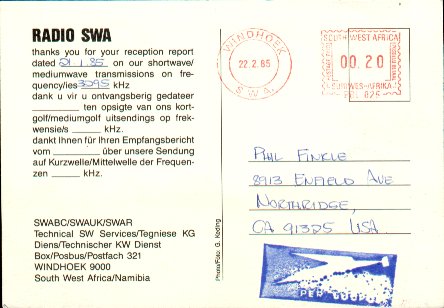 RADIO SWA
thank you for your reception report
dated 21.1.85 on our shortwave/
mediumwave transmissions on fre-
quency/ies 3295 kHz
dank u vir u ontvangsberig gedateer
__________ ten opsigte van ons kort-
golf/mediumgolf uitsendings op frek-
wensie/s ______ kHz.
dankt Ihnen für Ihren Empfangsbericht
vom __________ über unsere Sendung
auf Kurzwelle/Mittelwelle der Frequen-
zen ______ kHz.
SWABC/SWAUK/SWAR
Technical SW Services/Tegniese KG
Diens/Technischer KW Dienst
Box/Posbus/Postfach 321
WINDHOEK 9000
South West Africa/Namibia
Photo/Foto: G. Keding
WINDHOEK
22.2.85
S.W.A.
SOUTH WEST AFRICA
00.20
SUIDWES-AFRIKA
PHIL FINKLE
8913 ENFIELD AVE
NORTHRIDGE,
CA 91325 USA
PER LUGPOS